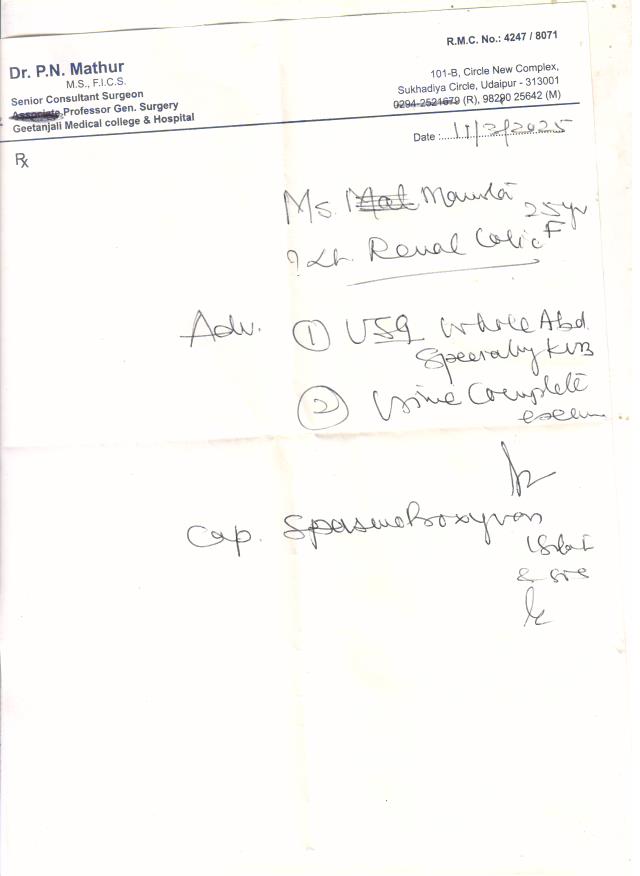 R.M.C. No.: 4247 / 8071
Dr. P.N. Mathur
M.S., F.I.C.S.
Senior Consultant Surgeon
Associate Professor Gen. Surgery
Geetanjali Medical college & Hospital
101-B, Circle New Complex,
Sukhadiya Circle, Udaipur - 313001
0294-2521679 (R), 98290 25642 (M)
Date : 11/2/2025
Rx
Ms. 25 yr
F
? Lt. Renal Colic
Adv. ① USG Whole Abd.
Specially KUB
② Urine Complete
exam
Cap. SpasmoProxyvon
1 Stat
& SOS